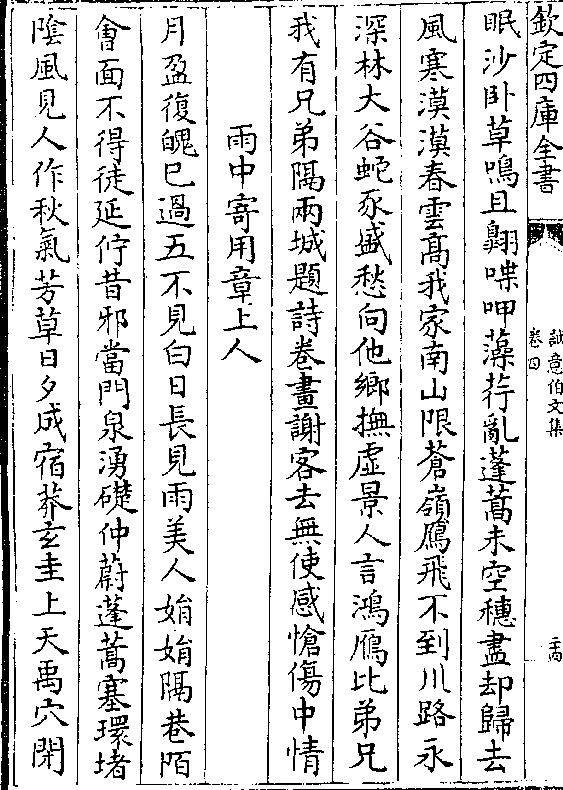 欽定四庫全書
誠意伯文集
卷四
眠沙卧草鳴且翺喋呷藻荇亂蓬蒿未空穗盡却歸去
風寒漠漠春雲高我家南山限蒼嶺鴈飛不到川路永
深林大谷蛇豕盛愁向他鄉撫虛景人言鴻鴈比弟兄
我有兄弟隔兩城題詩卷畫謝客去無使感愴傷中情
雨中寄用章上人
月盈復魄已過五不見白日長見雨美人娟娟隔巷陌
會面不得徒延佇昔邪當門泉湧礎仲蔚蓬蒿塞環堵
陰風見人作秋氣芳草日夕成宿莽玄圭上天禹穴閉